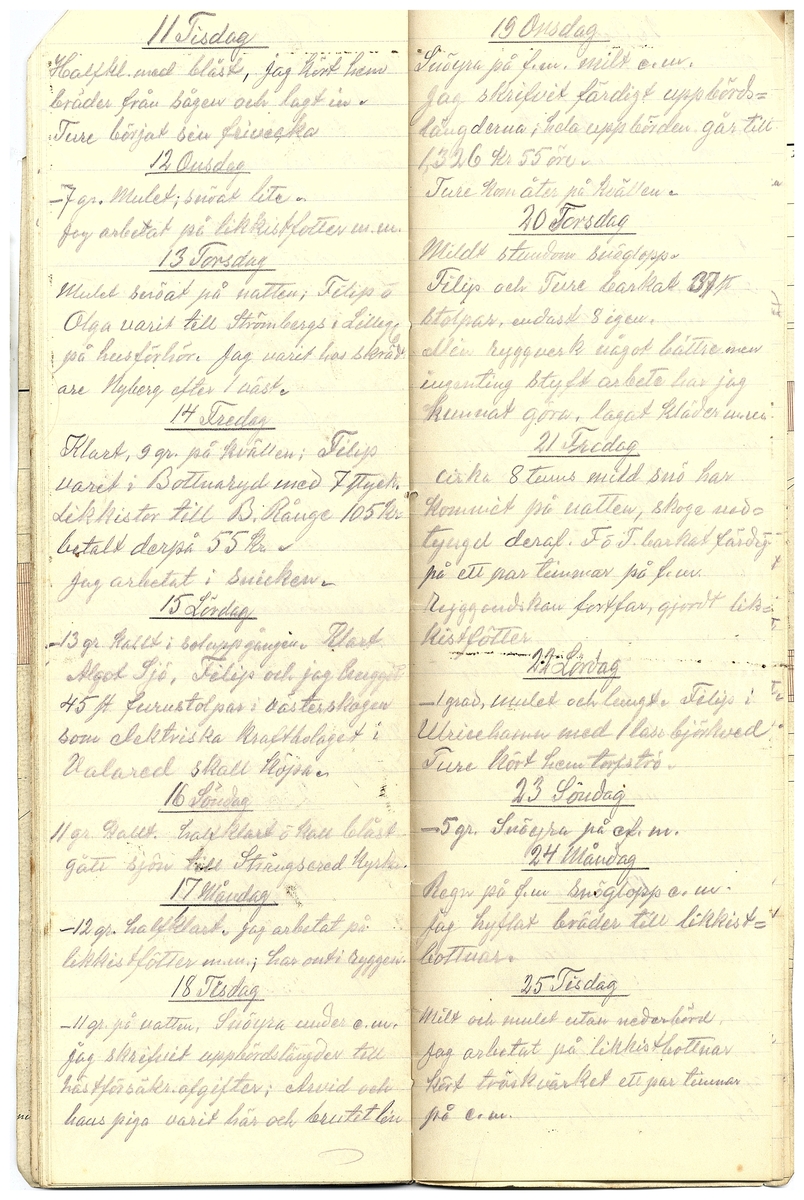 11 Tisdag
Halfkl. med blåst, jag kört hem
bräder från sågen och lagt in.
Ture börjat sin frivecka
12 Onsdag
-7 gr. Mulet; snöat lite.
Jag arbetat på likkistfötter m.m.
13 Torsdag
Mulet snöat på natten; Filip o
Olga varit till Strömbergs i Lilleg.
på husförhör. Jag varit hos skrädd
are Nyberg efter 1 väst.
14 Fredag
Klart, 9 gr. på kvällen; Filip
varit i Bottnaryd med 7 styck.
Likkistor till B. Range 105 kr
betalt derpå 55 kr.
Jag arbetat i snicken.
15 Lördag
-13 gr kallt i soluppgången. Klart
Algot Sjö, Filip och jag huggit
45 st furustolpar i västerskogen
som elektriska kraftbolaget i
Valared skall köpa.
16 Söndag
11 gr. kallt. halfklart o kall blåst
gått sjön till Strängsered kyrka.
17 Måndag
-12 gr. halfklart. jag arbetat på
likkistfötter m.m.; har ont i ryggen.
18 Tisdag
-11 gr. på natten, Snöyra under e.m.
jag skrifvit uppbördslängder till
hästförsäkr. afgifter; Arvid och
hans piga varit här och brutet lin
19 Onsdag
Snöyra på f.m. milt e.m.
Jag skrifvit färdigt uppbörds=
längderna; hela uppbörden går till
1,326 kr 55 öre.
Ture kom åter på kvällen.
20 Torsdag
Mildt stundom snöglopp.
Filip och Ture barkat 37 st
stolpar, endast 8 igen.
Min ryggverk något bättre men
ingenting styft arbete har jag
kunnat göra, lagat kläder m.m.
21 Fredag
cirka 8 tums mild snö har
kommit på natten, skoge ned=
tyngd deraf. F o T. barkat färdig
på ett par timmar på f.m.
Ryggondskan fortfar, gjordt lik=
kistfötter
22 Lördag
-1 grad, mulet och lungt. Filip i
Ulricehamn med 1 lass björkved
Ture kört hem torfströ.
23 Söndag
-5 gr. Snöyra på ef.m.
24 Måndag
Regn på f.m snöglopp e.m.
Jag hyflat bräder till likkist=
bottnar.
25 Tisdag
Milt och mulet utan nederbörd.
Jag arbetat på likkistbottnar
kört tröskvärket ett par timmar
på e.m.